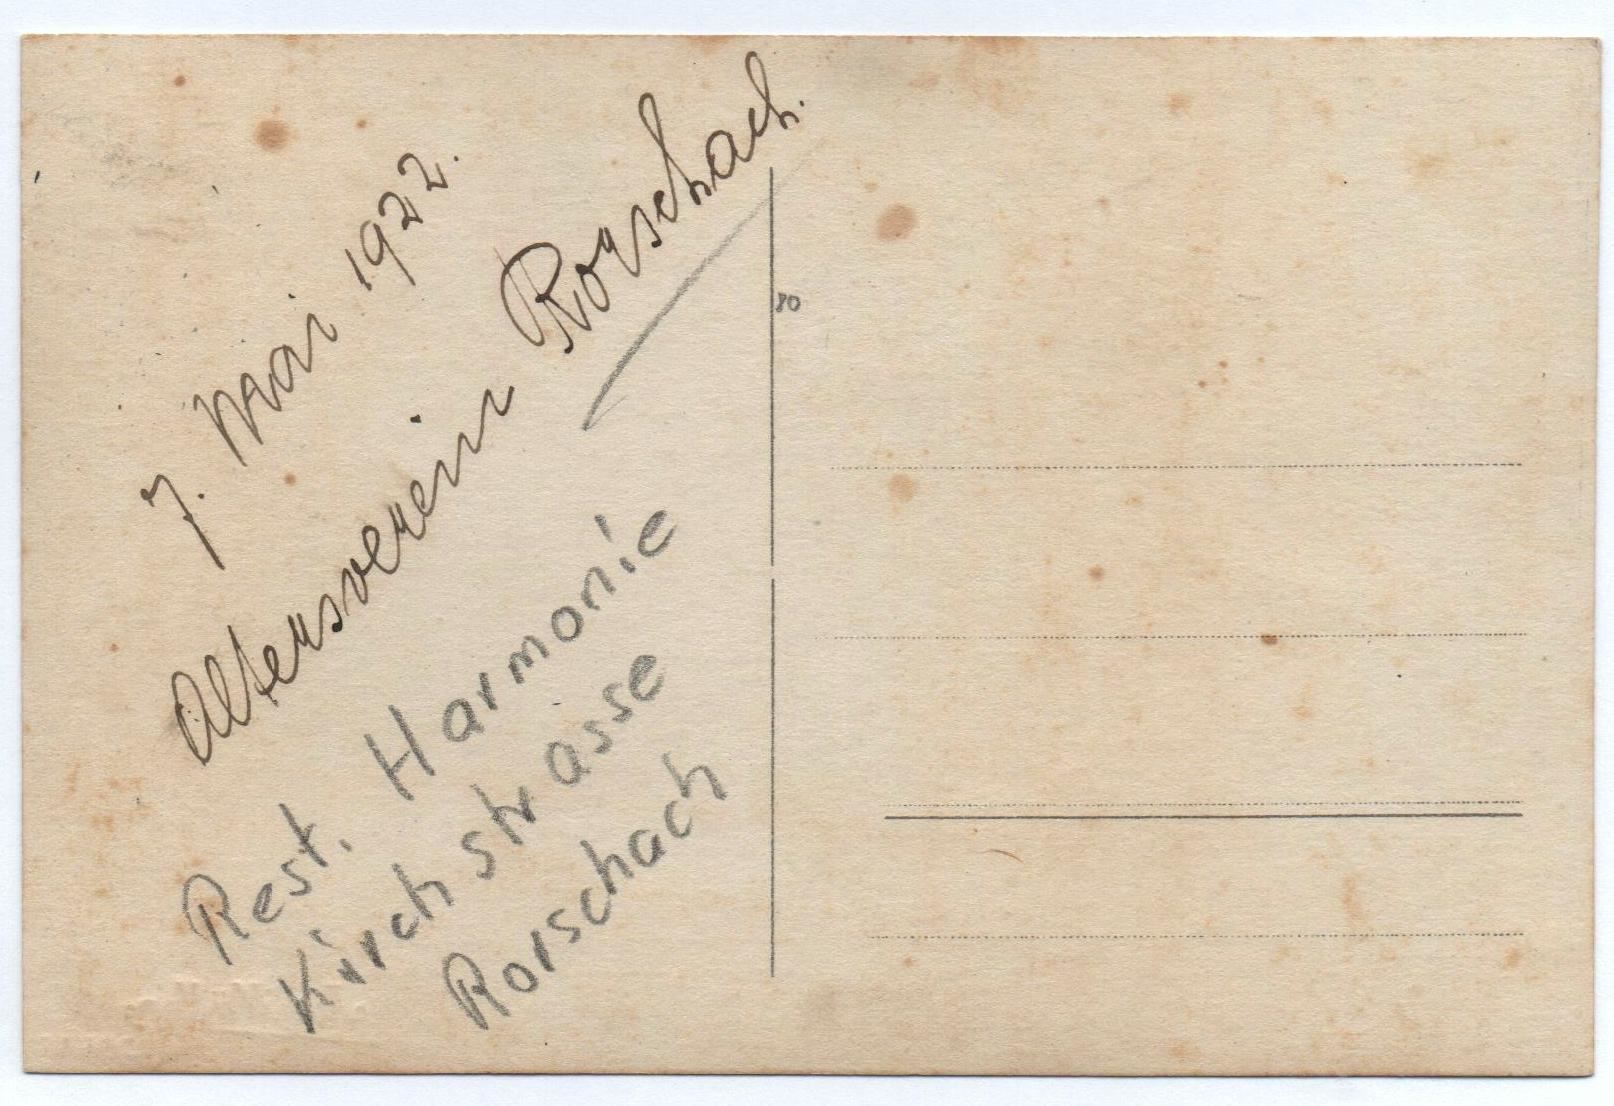 7. Mai 1922.
Altersverein Rorschach.
Rest. Harmonie
Kirchstrasse
Rorschach
80